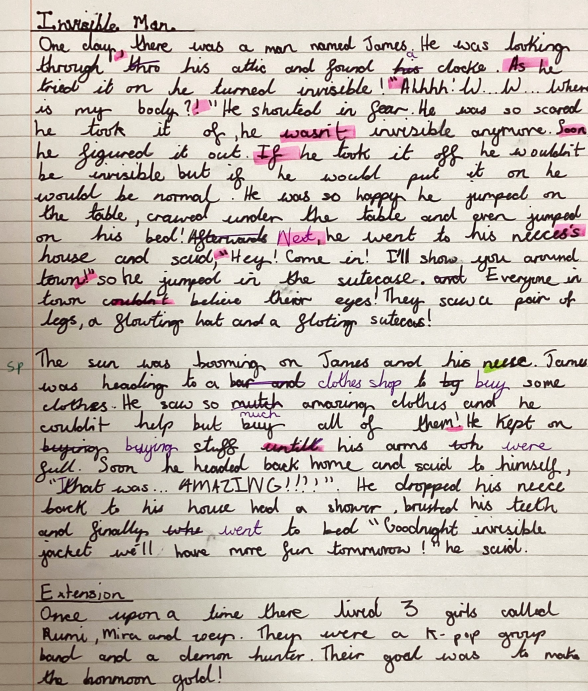 Invisible Man.
One day, there was a man named James. He was looking
through thro his attic and found his a clocke. As he
tried it on he turned invisible! "Ahhh! W... W... Where
is my body?!" He shouted in fear. He was so scared
he took it of, he wasn't invisible anymore. Soon
he figured it out. If he took it off he wouldn't
be invisible but if he would put it on he
would be normal. He was so happy he jumped on
the table, crawed under the table and even jumped
on his bed! Afterwards Next, he went to his neeces's
house and said, "Hey! Come in! I'll show you around
town!" so he jumped in the sutecase. and Everyone in
town couldn't believe their eyes! They saw a pair of
legs, a flowting hat and a floting sutecas!
Sp The sun was booming on James and his neese. James
was heading to a bar and clothes shop to by buy some
clothes. He saw so mutch much amazing clothes and he
couldn't help but buy all of them! He kept on
buying buying stuff untill his arms weh were
full. Soon he headed back home and said to himself,
"That was... AMAZING!!!!". He dropped his neece
back to his house had a shower, brushed his teeth
and finally whe went to bed "Goodnight invresible
jacket we'll have more fun tommorow!" he said.
Extension
Once upon a time there lived 3 girls called
Rumi, Mira and zoey. They were a K-pop group
band and a demon hunter. Their goal was to make
the honmoon gold!